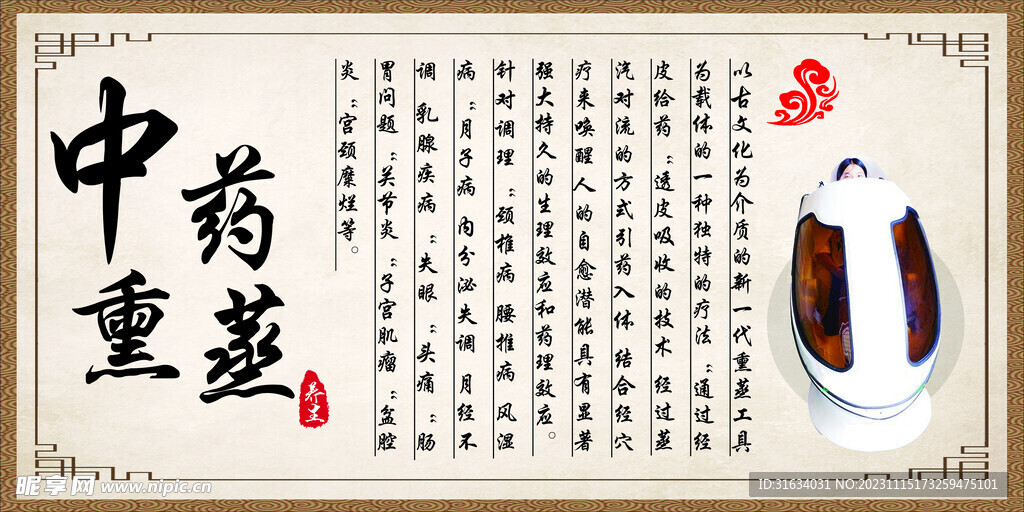 中药熏蒸
养生
以古文化为介质的新一代熏蒸工具
为载体的一种独特的疗法 “通过经
皮给药 “透皮吸收的技术 经过蒸
汽对流的方式引药入体 结合经穴
疗来唤醒人的自愈潜能具有显著
强大持久的生理效应和药理效应。
针对调理 “颈椎病 腰椎病 风湿
病 “月子病 内分泌失调 月经不
调 乳腺疾病 “失眼 “头痛 “肠
胃问题 “关节炎 “子宫肌瘤 “盆腔
炎 “宫颈糜烂等。
昵享网 www.nipic.cn
ID:31634031 NO:20231115173259475101